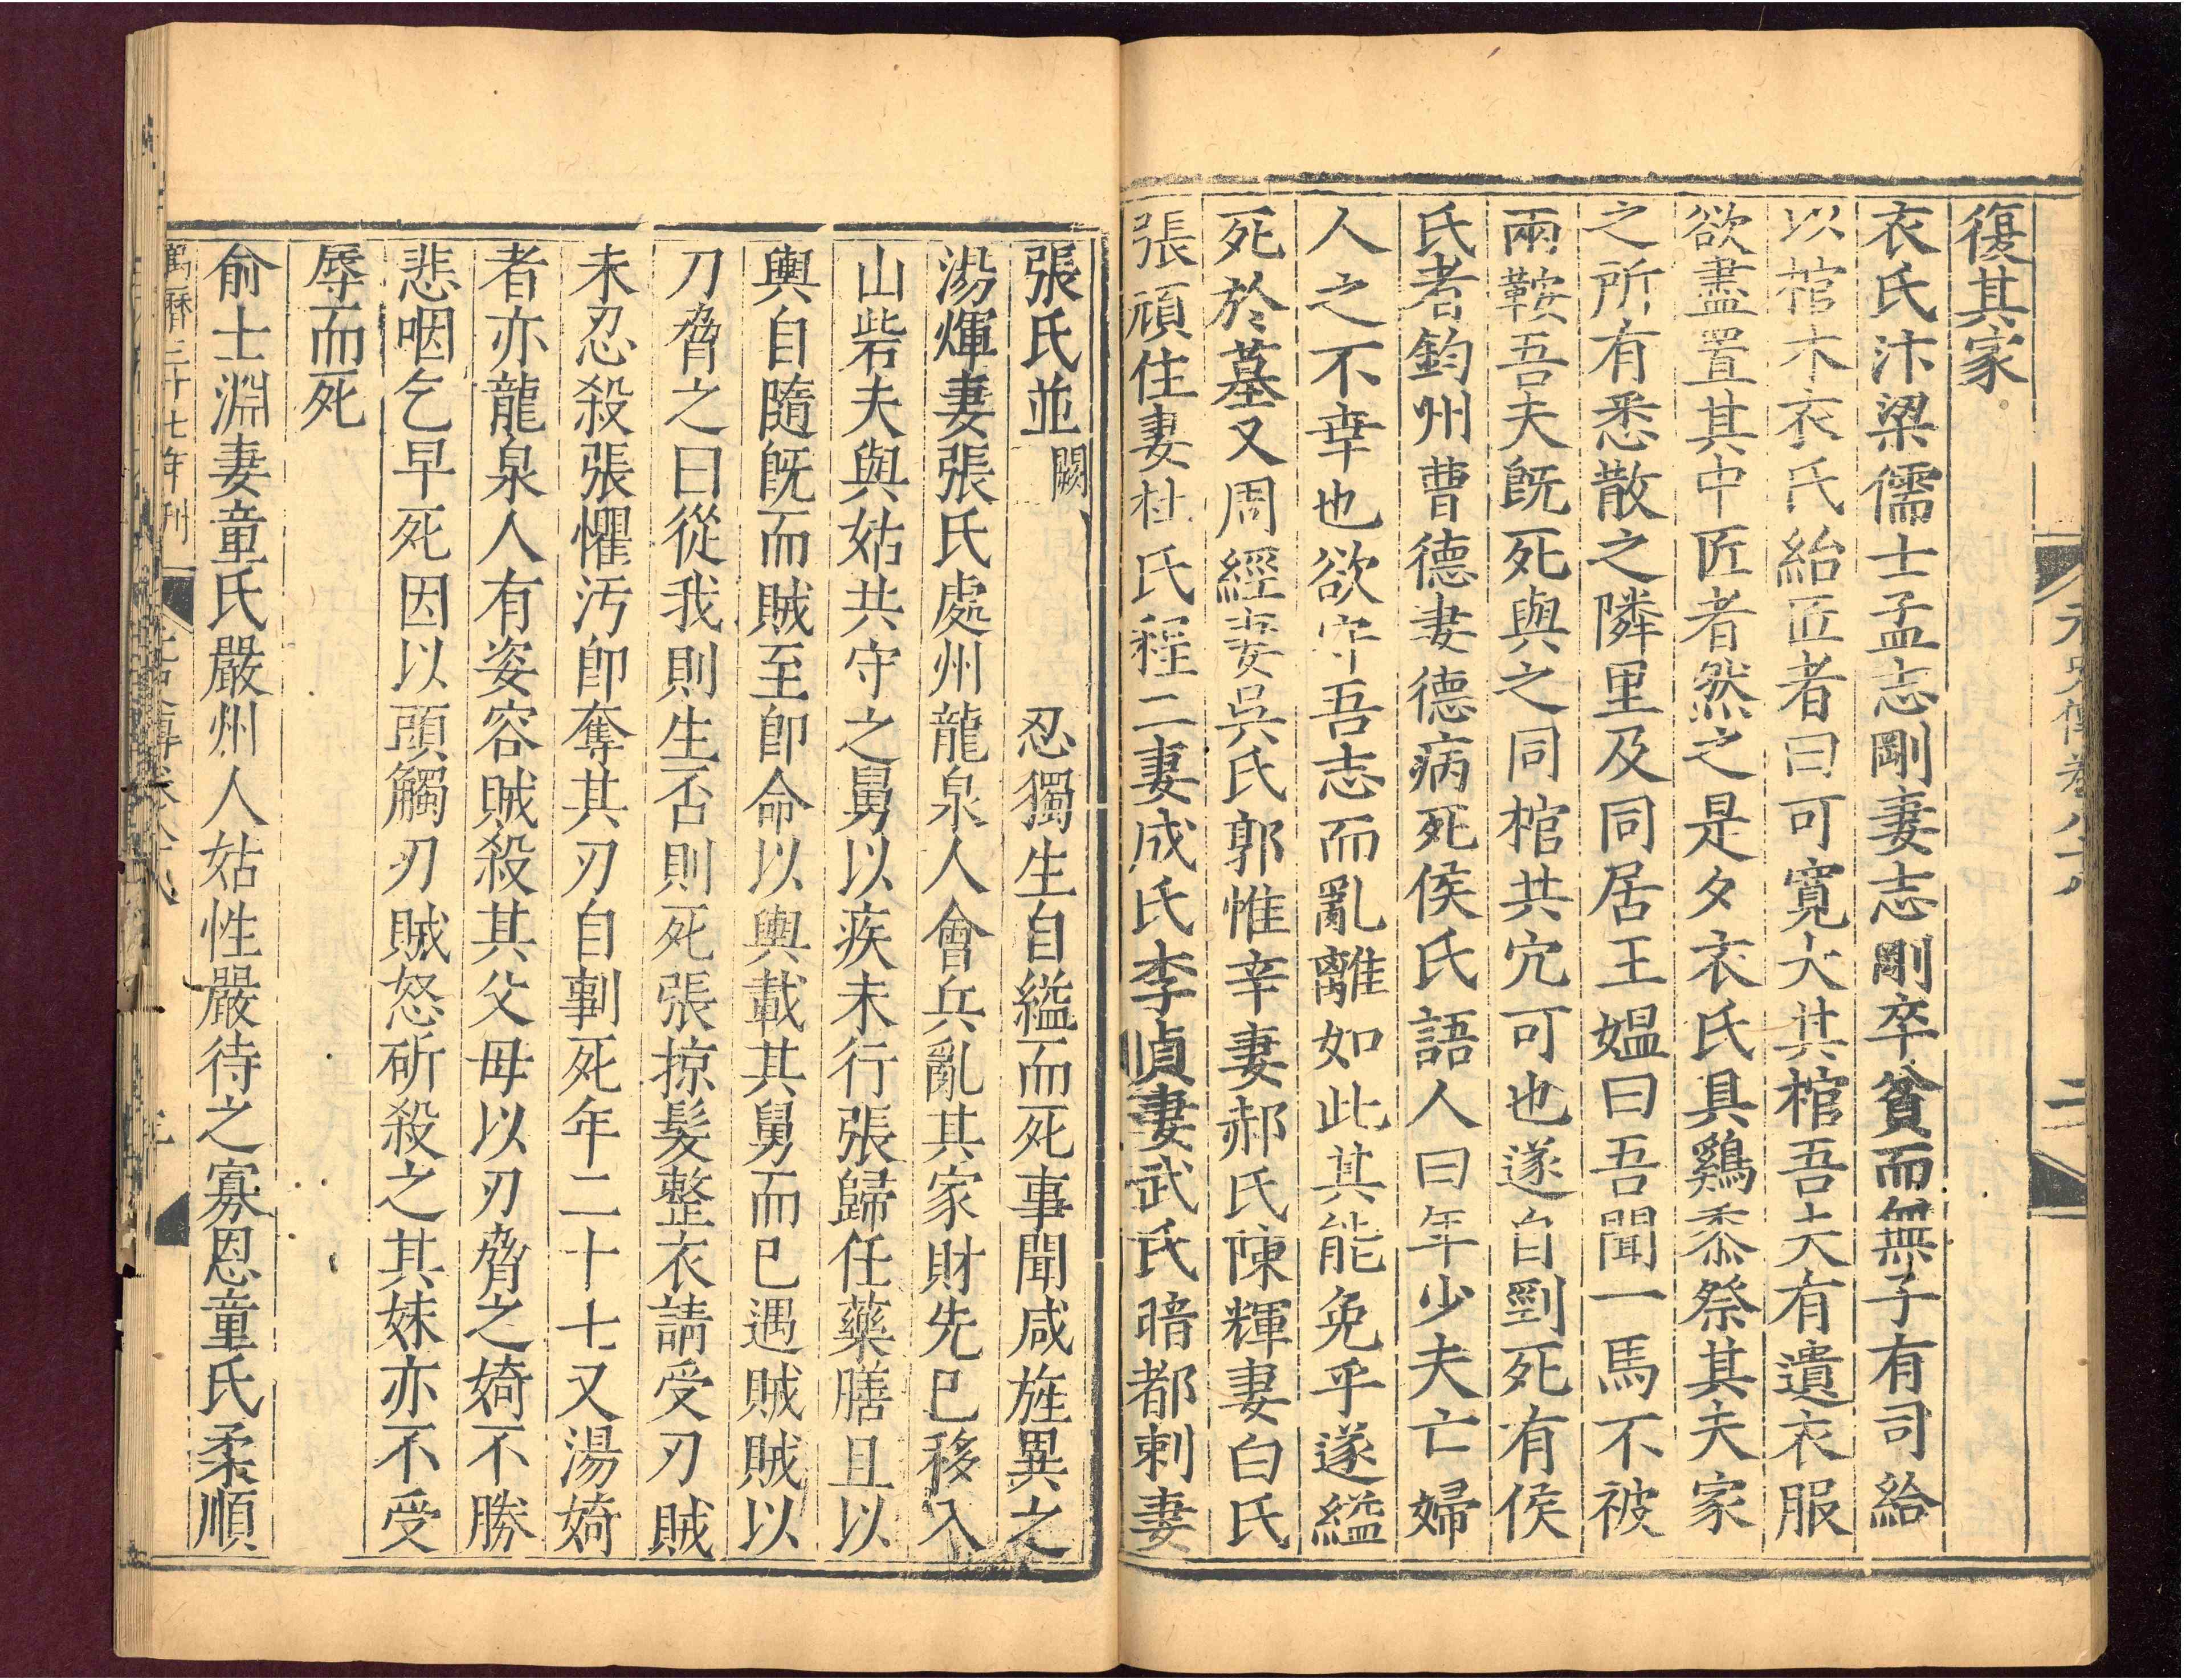 元史傳卷八十八
二
復其家
衣氏汴梁儒士孟志剛妻志剛卒貧而無子有司給
以棺木衣氏紿匠者曰可寬大其棺吾夫有遺衣服
欲盡置其中匠者然之是夕衣氏具鷄黍祭其夫家
之所有悉散之隣里及同居王媼曰吾聞一馬不被
兩鞍吾夫旣死與之同棺共穴可也遂自剄死有侯
氏者鈞州曹德妻德病死侯氏語人曰年少夫亡婦
人之不幸也欲守吾志而亂離如此其能免乎遂縊
死於墓又周經妻吳氏郭惟辛妻郝氏陳輝妻白氏
張頑住妻杜氏程二妻成氏李貞妻武氏暗都剌妻
張氏並闕忍獨生自縊而死事聞咸旌異之
湯煇妻張氏處州龍泉人會兵亂其家財先已移入
山砦夫與姑共守之舅以疾未行張歸任藥膳且以
輿自隨旣而賊至卽命以輿載其舅而已遇賊賊以
刀脅之曰從我則生否則死張掠髮整衣請受刃賊
未忍殺張懼汚卽奪其刃自剚死年二十七又湯婍
者亦龍泉人有姿容賊殺其父母以刃脅之婍不勝
悲咽乞早死因以頭觸刃賊怒斫殺之其妹亦不受
辱而死
俞士淵妻童氏嚴州人姑性嚴待之寡恩童氏柔順
萬曆三十七年刊